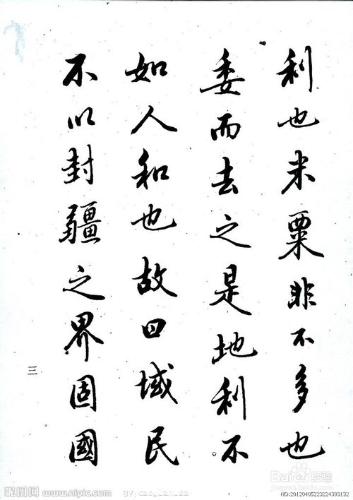 利也米粟非不多也
委而去之是地利不
如人和也故曰域民
不以封疆之界固國
三
昵图网 www.nipic.com
Baidu 经验